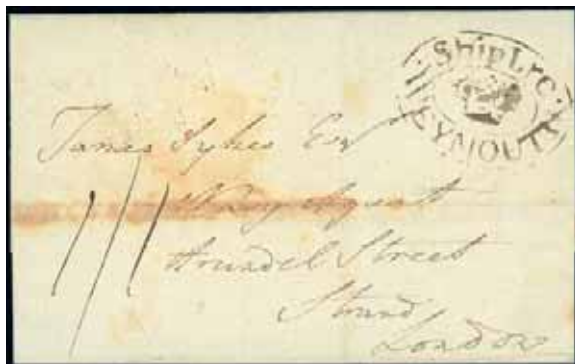 Ship Lre
WEYMOUTH
James Sykes Esqr
Navy Agent
Arundel Street
Strand
London
1/1